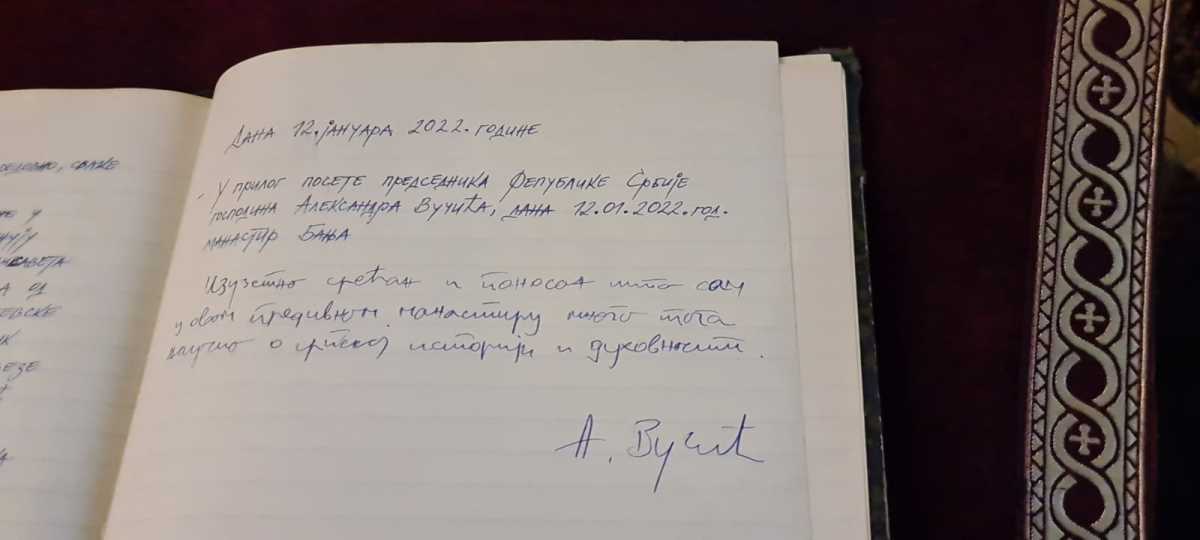 сложе
не у
нују
нисавета
а од
евске
ик
езе
Дана 12. јануара 2022. године
У прилог посете председника Републике Србије
господина Александра Вучића, дана 12.01.2022. год.
манастир Бања
Изузетно срећан и поносан што сам
у овом предивном манастиру много тога
научио о српској историји и духовности.
А. Вучић